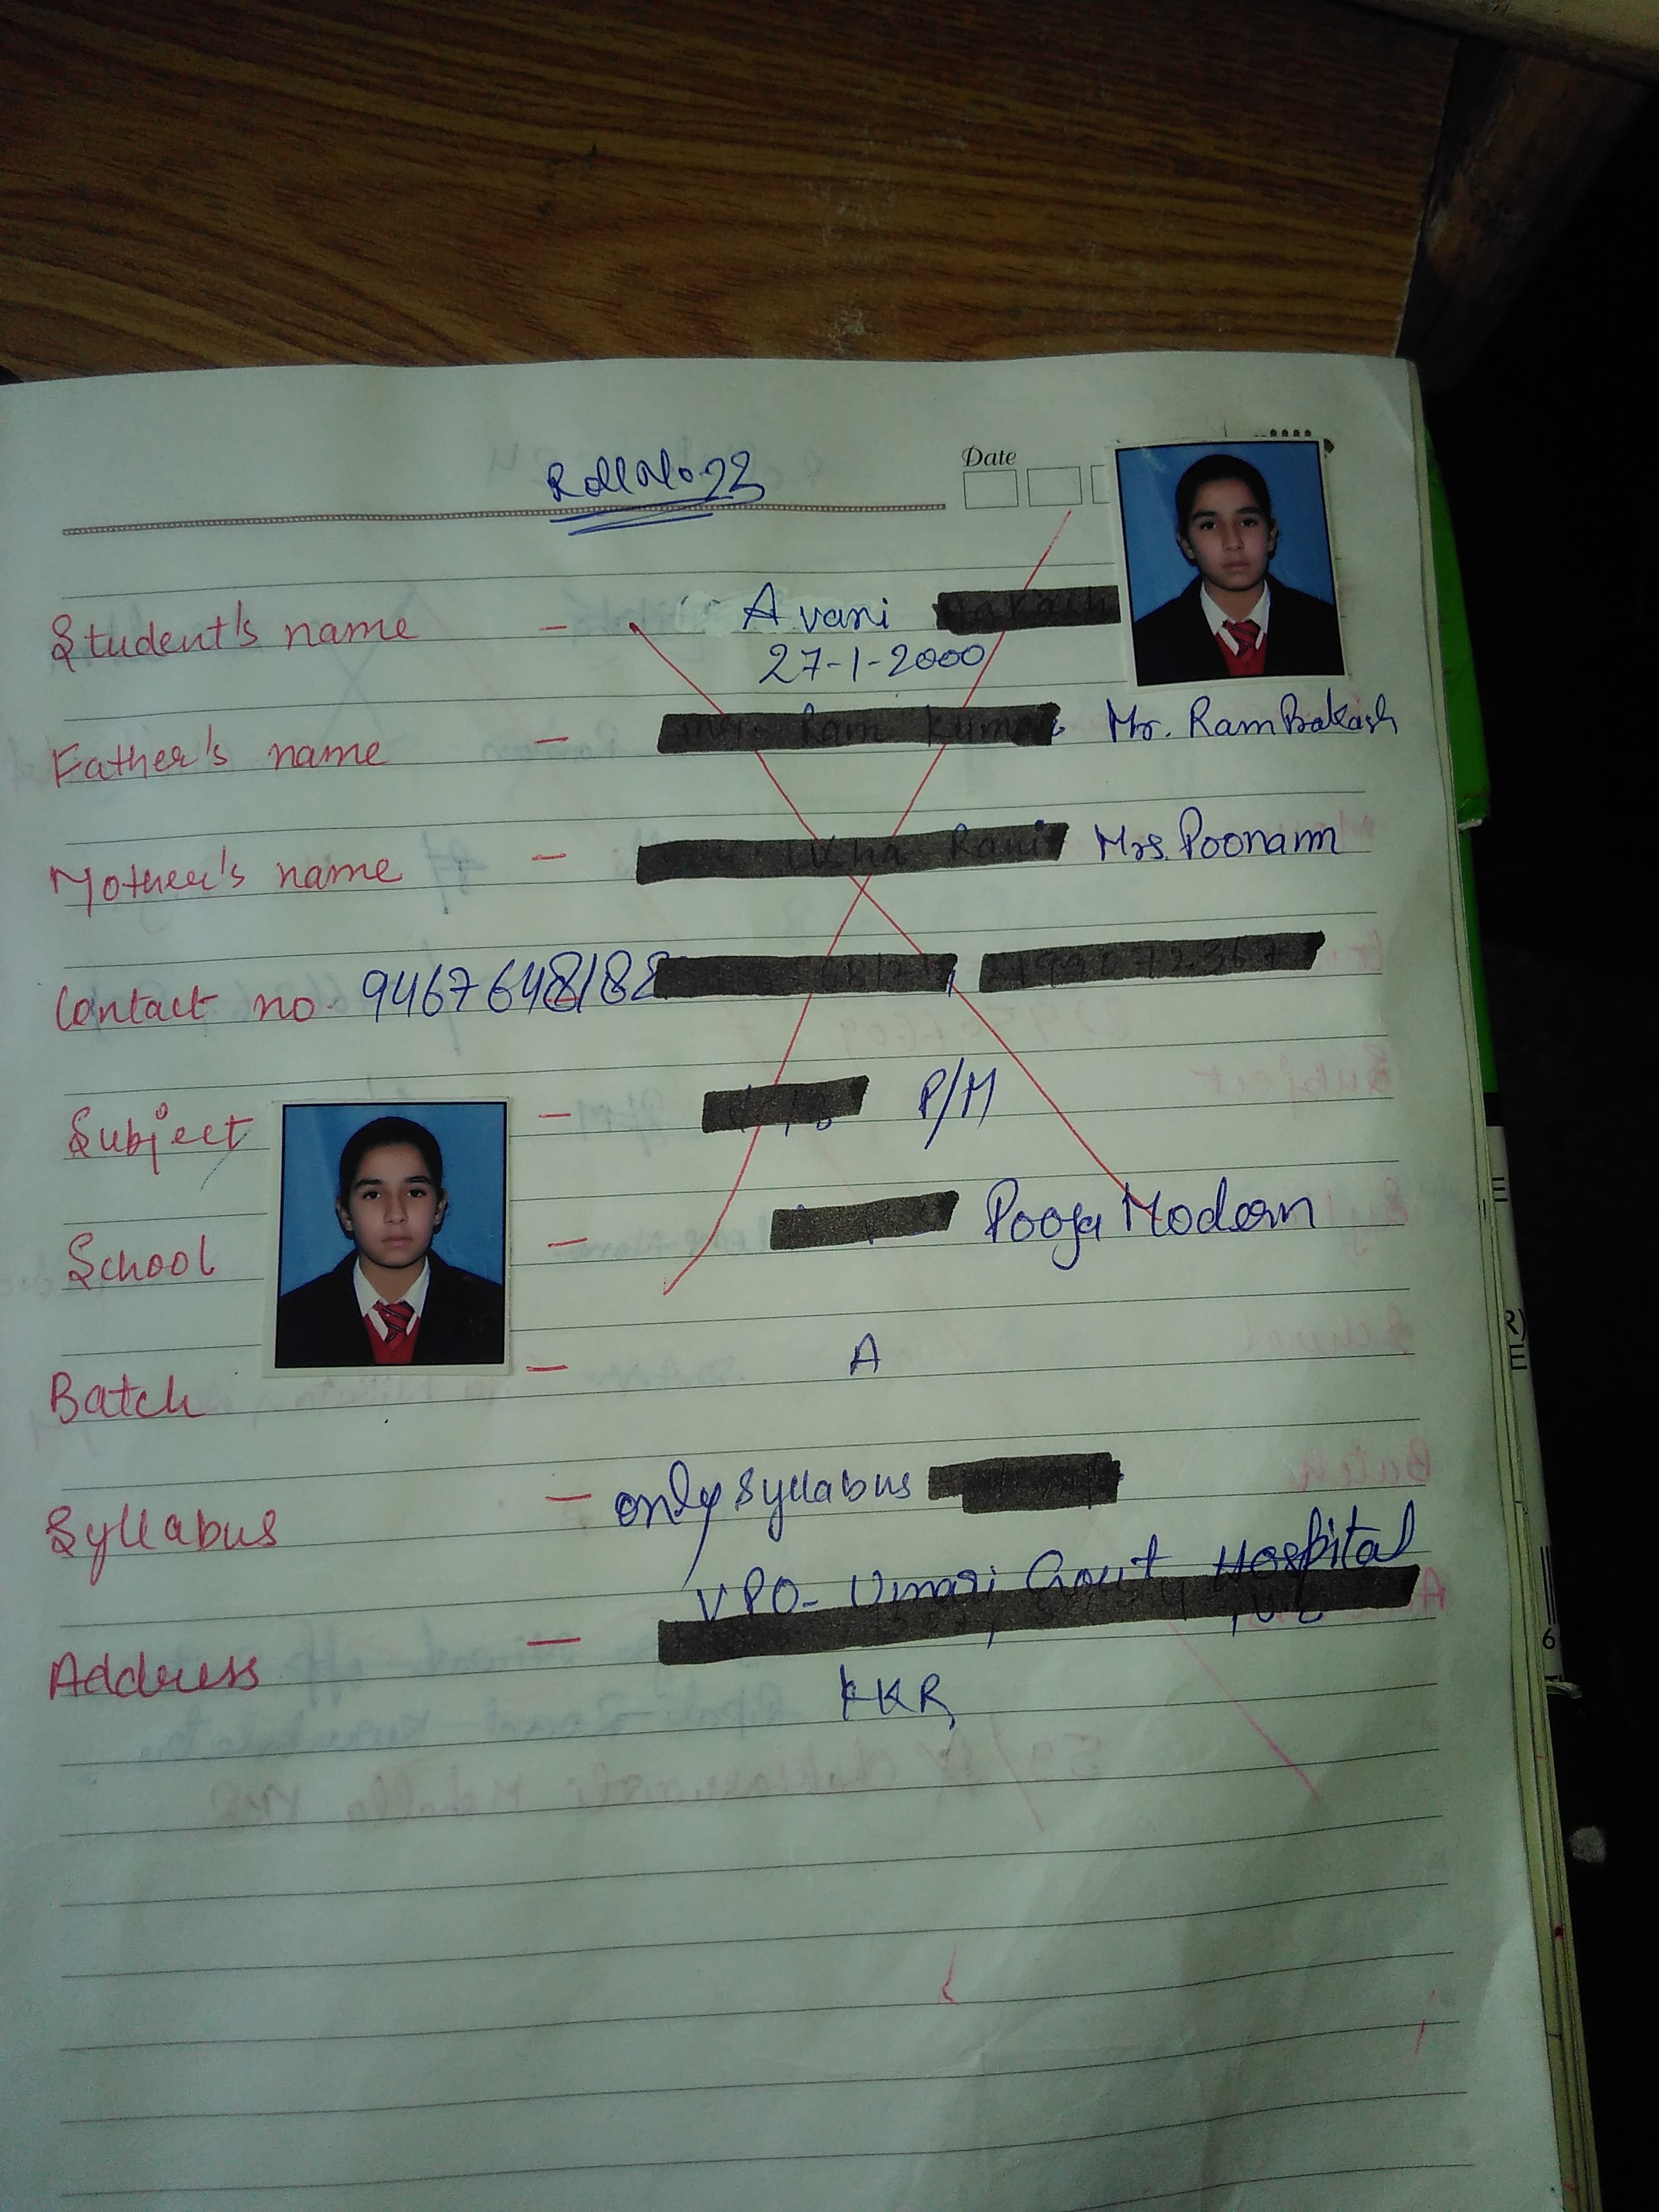 Date
Roll No. 22
Student's name - Avani
27-1-2000
Father's name - Mr. Ram Prakash
Mother's name - Mrs. Poonam
Contact no. 9467648182
Subject - P/M
School - Pooja Modern
Batch - A
Syllabus - only syllabus
VPO- Umari Govt Hospital
Address -
KKR